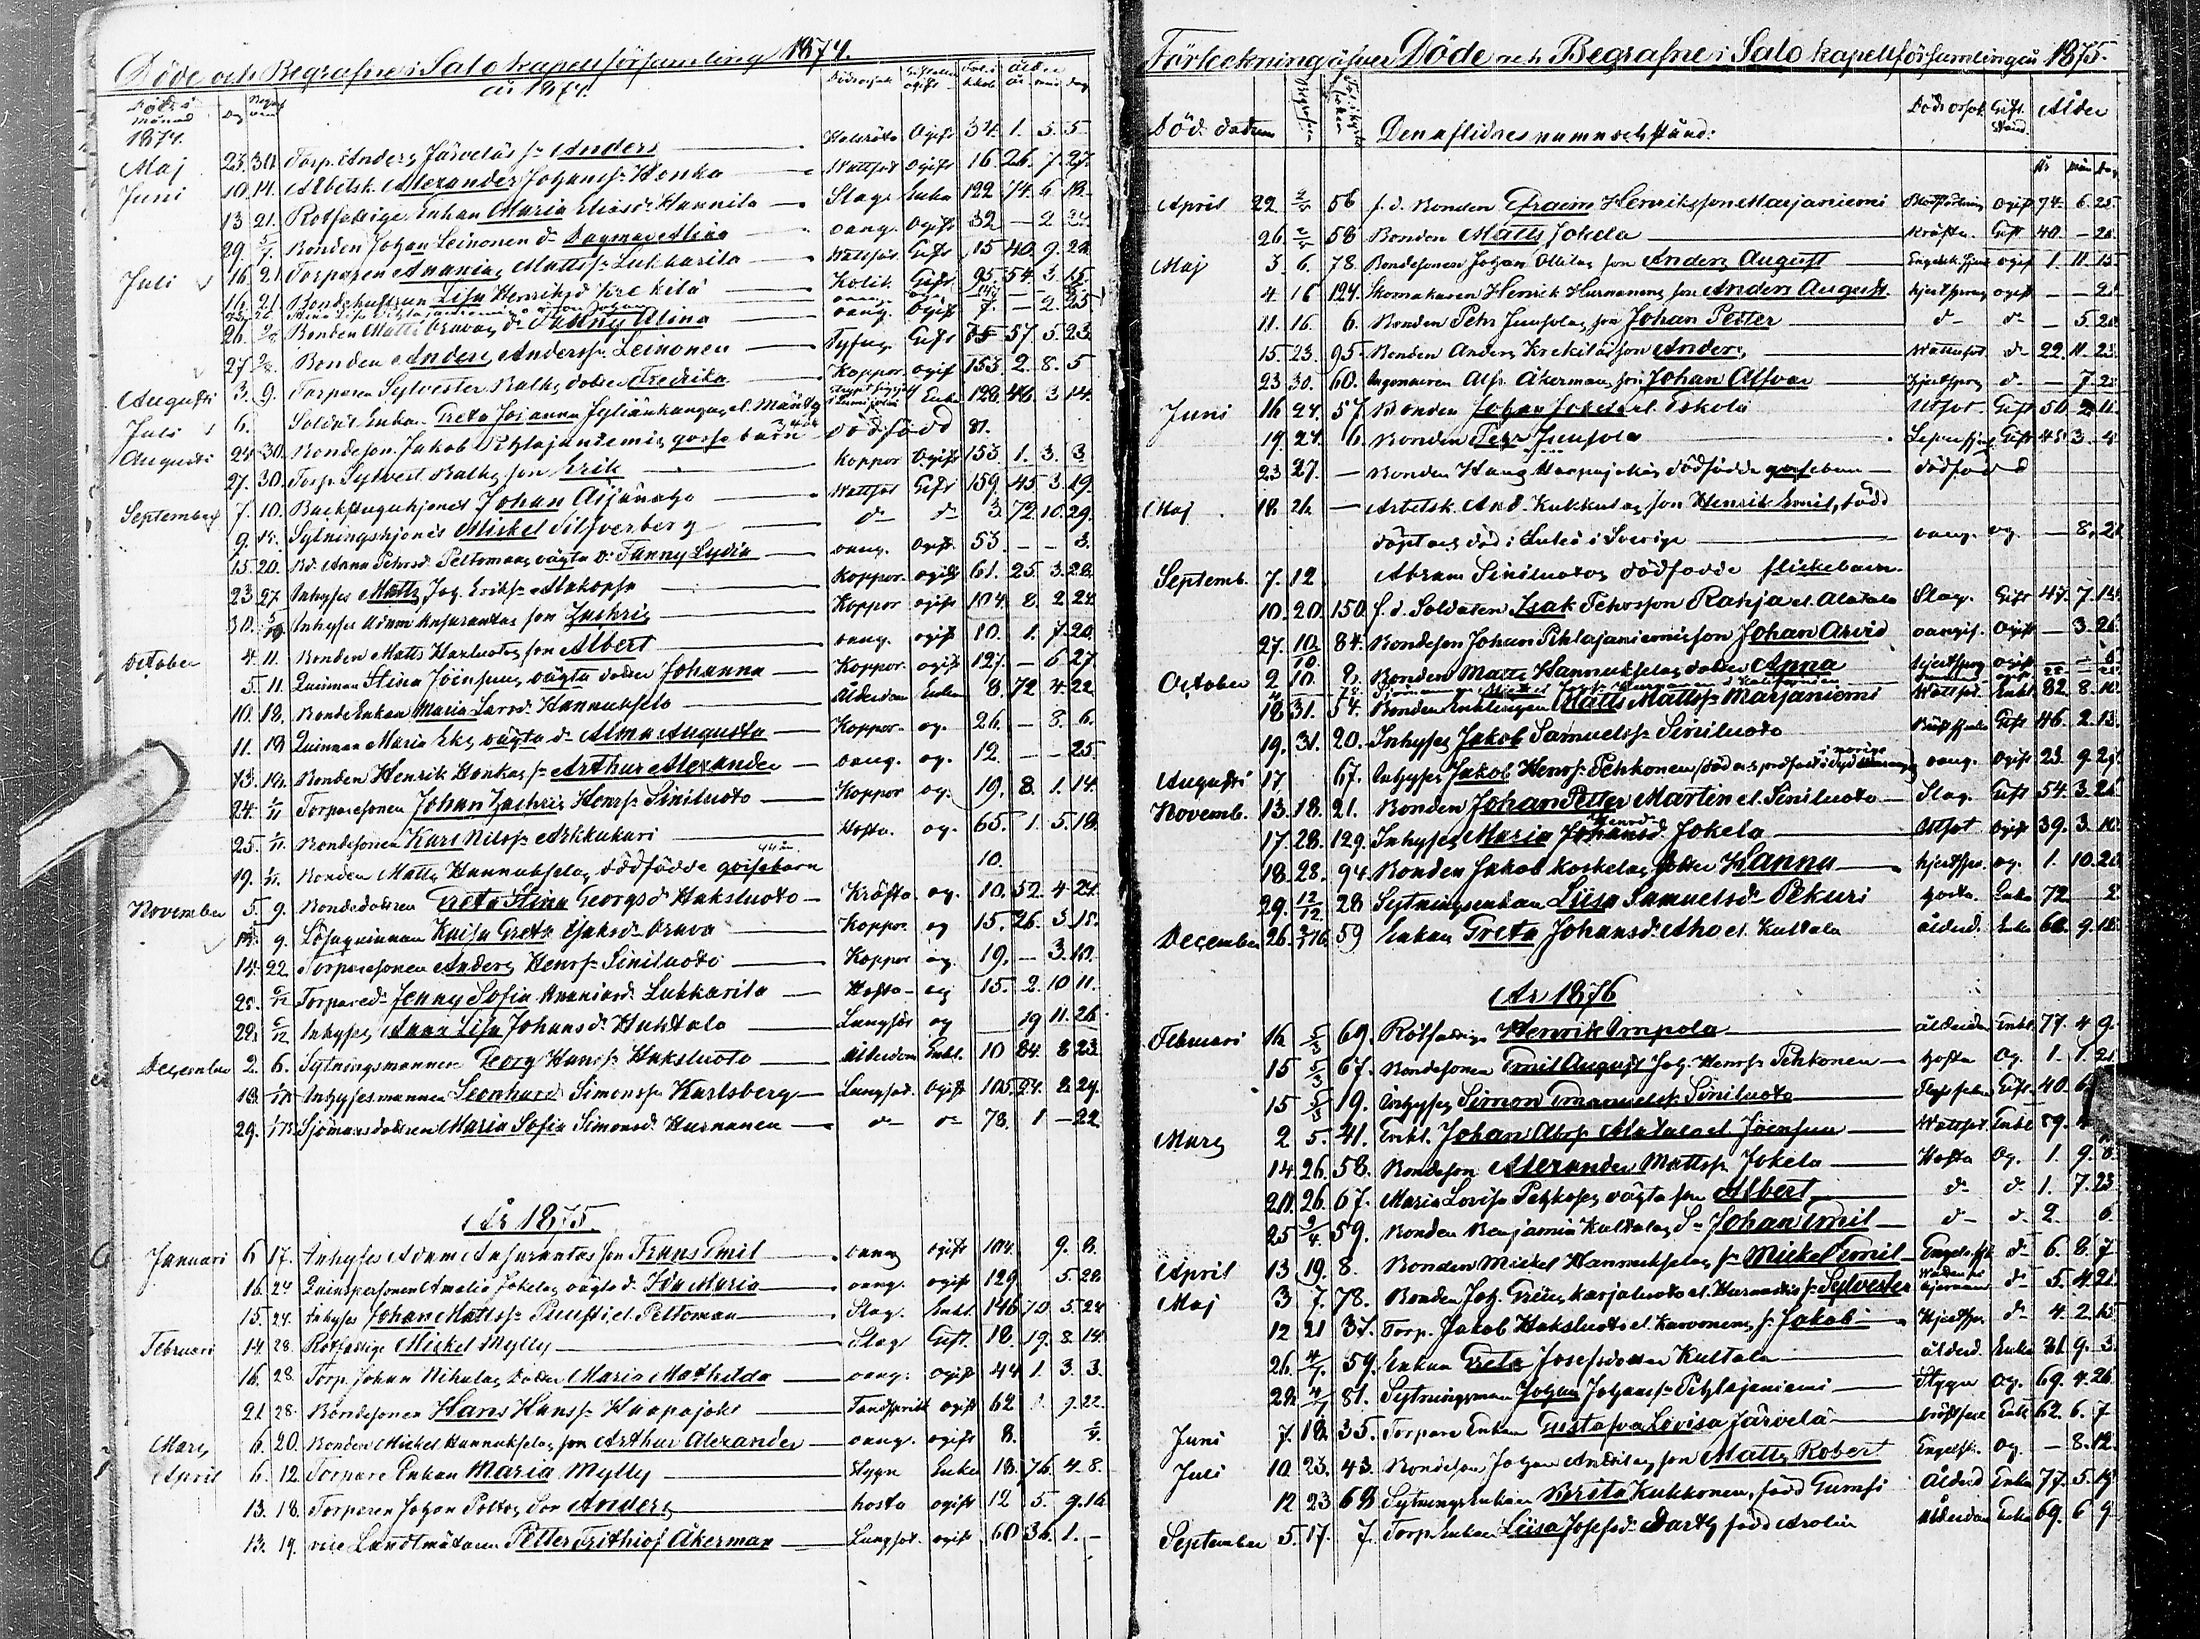 Döde och Begrafne i Salo kapellförsamling 1874.
år 1874.
Döds månad Dag Dödsorsak Ålder år mån dag
1874.
Maj 23. 30. Torp. Anders Järveläs s. Anders Ogift 34. 1. 5. 5.
Juni 10. 14. Arbetsk. Alexander Johanss. Honka Wattsot Ogift 16 26. 7. 27.
13 21. Rotfattige Enkan Maria Eliasd. Hannila Slag Enka 122 74. 6 18.
29. 5/7. Bonden Johan Leinonen d. Dagmar Alina oang. Ogift 32 — 2
Juli 16. 21 Torparen Ananias Mattss. Lukkarila Wattsot Gift 15 40. 9. 22.
16 21 Bondehustrun Lisa Henriksd. Krekilä Kolik. Gift 95. 54 3. 15
26. 2/8 Bonden Matts Oravas d. Fanny Alina oang. Ogift 7. — 2. 25
27. 2/8. Bonden Anders Anderss. Leinonen Tyfus. Gift 57 5. 23
Augusti 3. 9. Torparen Sylvester Ralks dotter Fredrika Koppor. ogift 153 2. 8. 5
Juli 6. Soldat Enkan Greta Johanna Enka 128. 46 3 14.
Augusti 24 30. Bondeson. Jakob Pihlajaniemis gosse barn dödfödd 81.
27. 30. Torp. Sylvest. Ralks son Erik Koppor Ogift 153. 1. 3. 3
September 7. 10. Backstuguhjonet Johan Äijänaho Wattsot Gift 159 45 3. 19.
9. 13. Sytningshjonet Mickel Silfverberg d:o d:o 3 72. 10. 29.
15. 20. Bd. Anna Pehrsd. Peltomaas oägta d. Fanny Lydia oang. Ogift. 53. — — 3.
23 27. Inhyses Matts Joh. Erikss. Alakopsa Koppor. ogift 61. 25. 3. 28.
30. Inhyses Adam Ansurantas son Zachris Koppor ogift 104. 8. 2 24
October 4. 11. Bonden Matts Haxluotos son Albert oang. ogift 10. 1. 7. 20.
5. 11. Quinnan Stina Joensuus oägta dotter Johanna Koppor. ogift 127. — 6 27.
10. 18. Bonde Enkan Maria Larsd. Hannuksela Ålderdom Enka 8. 72 4. 22
11. 18 Quinnan Maria Eks oägta d. Alma Augusta Koppor. og. 26. — 8. 6.
13. 18. Bonden Henrik Honkas s. Arthur Alexander oang. og. 12. — — 25
24. 1/11 Torparesonen Johan Zachris Henrs. Siniluoto Koppor og. 19. 8. 1. 14.
25. 1/11. Bondesonen Karl Nilss. Arkkukari Hosta. og. 65. 1. 5. 18.
19. 1/11. Bonden Matts Hannukselas dödfödde gossebarn 10.
November 5. 9. Bondedottren Greta Stina Georgsd. Haksluoto Kräfta og. 10. 52. 4 24.
9. Lösaquinnan Kaisa Greta Isaksd. Orava Koppor. og 15. 26. 5. 15.
14. 22 Torparesonen Anders Henrs. Siniluoto Koppor og. 19. — 3. 10.
28. 6/12 Torpared. Jenny Sofia Ananiasd. Lukkarila Hosta og 15. 2. 10 11.
28. 6/12 Inhyses Anna Lisa Johansd. Huhtala Lungsot og — 19 11. 26
December 2. 6. Sytningsmannen Georg Hanss. Haksluoto Ålderdom Enkl. 10 84. 8 23
18. Inhysesmannen Leonhard Simonss. Karlsberg Lungsot. Ogift 105. 24. 2. 29.
29. Sjömansdottren Maria Sofia Simonsd. Hurnanen d:o d:o 78. 1 — 22
År 1875.
Januari 6 17. Inhyses Adam Ansurantas son Frans Emil oang ogift 104. 9. 8.
16. 24 Quinspersonen Amalia Jokelas oägta d. Ida Maria oang. ogift 129. 5. 28.
15. 24. Inhyses Johan Mattss. Puusti el. Peltomaa Slag. Enkl. 146 70 5. 24
Februari 14 28. Rotfattige Mickel Mylly Slag Gift. 18. 19. 8. 14.
16. 28. Torp. Johan Nikulas dotter Maria Mathilda oang. ogift 44 1. 3. 3.
21 28. Bondesonen Hans Hanss. Haapajoki Tandsprick. ogift 62 1 9. 22.
Mars 6. 20. Bonden Mickel Hannukselas son Arthur Alexander oang. ogift 8.
April 6. 12. Torpare Enkan Maria Mylly Stygn Enka 18. 76. 4. 8.
13. 18. Torparen Johan Poltos son Anders hosta ogift 12 5. 9. 16
13. 19. vice Landtmätaren Petter Frithiof Åkerman Lungsot. ogift 60 36. 1. —
Förteckning öfver Döde och Begrafne i Salo kapellförsamling år 1875.
Död. datum Den aflidnes namn och stånd: Dödsorsak Gift. Stånd. Ålder
År Mån Dag
April 22 2/5 56 f.d. Bonden Efraim Henriksson Marjaniemi ogift 74. 6. 25.
26. 2/5 58 Bonden Matts Jokela Kräfta. Gift 40. — 26
Maj 3. 6. 78. Bondesonen Johan Ollilas son Anders August ogift 1. 11. 15.
4 16 124. Skomakaren Henrik Hurnanens son Anders August. hjertsprag ogift — — 21
11. 16. 6. Bonden Pehr Juusolas son Johan Petter d:o d:o — 5. 20.
15. 23. 95. Bonden Anders Krekiläs son Anders Wattusot d:o 22. 11. 23.
23 30. 60. Ingeniören Alfr. Åkermans son Johan Alfvar hjertsprag d:o — 7. 25
Juni 16 24. 57. Bonden Johan Jokela el. Eskola Utsot. Gift 50 2. 11.
19. 27. 6. Bonden Pehr Juusola Gift 45. 3. 4
23 27. — Bonden Hans Haapajokis dödfödde gossebarn dödfödd
Maj 18. 26 — Arbetsk. And. Kukkulas son Henrik Emil, född
döpt och död i Luleå i Sverige oang. og. — 8. 21
Septemb. 7. 12. Abram Siniluotos dödfödde flickebarn.
10. 20. 150. f.d. Soldaten Isak Pehrsson Rahja el. Alatalo Slag. Gift 47. 7. 13.
27. 84. Bondeson Johan Pihlajaniemis son Johan Arvid oangif. Ogift — 3. 26.
October 2 10. 9. Bonden Matts Hannukselas dotter Anna hjertsprag ogift
18 31. 54. Bonden Enklingen Matts Mattss. Marjaniemi Wattsot. Enkl. 82. 8. 10
19. 31. 20. Inhyses Jakob Samuelss. Siniluoto Gift 46. 2. 13.
Augusti 17 67. Inhyses Jakob Henrs. Pehkonen oang. Ogift 23. 9. 29
Novemb. 13. 18. 21. Bonden Johan Petter Martin el. Siniluoto Slag. Gift 54. 3. 26
17. 28. 129. Inhyses Maria Johansd. Jokela Utsot Ogift 39. 3. 10
18. 28. 94. Bonden Jakob Koskelas dotter Hanna hjertspr. og. 1. 10. 20
29. 12/12 28 Sytningsenkan Liisa Samuelsd. Pekuri hosta. Enka 72 — 2
December 26. 59 Enkan Greta Johansd. Aho el. Kultala ålderd. Enka 60. 9. 18.
År 1876
Februari 16 5/3 69. Rotfattige Henrik Impola ålderdom Enkl. 77. 4 9.
15 5/3 67. Bondesonen Emil August Joh. Henrs. Pehkonen hosta Og. 1. 1. 21
15 5/3 19. Inhyses Simon Emanuelss. Siniluoto Gift 40. 6.
Mars 2 5. 41. Enkl. Johan Abrs. Alatalo el. Joensuu Wattsot. Enkl 59.
14. 26. 58. Bondeson Alexander Mattss. Jokela Hosta Og. 1. 9. 8.
20. 26 67. Maria Lovisa Pehkoses oägta son Albert d:o d:o 1. 7. 23
25 2/4 59. Bonden Benjamin Kultalas S:n Johan Emil d:o d. 2. 6.
April 13 19. 8. Bonden Mickel Hannukselas s. Mickel Emil Engelska sj. d:o 6. 8. 7
Maj 3 7. 78. Bonden Joh. Grens Karjaluoto el. Hurnasis s. Sylvester Watten i hjernan d:o 5. 4. 21
12 21 37. Torp. Jakob Haksluoto el. Karvonens s. Jakob Hjertspr. d:o 4. 2. 15
26. 4/7. 59. Enkan Greta Josefsdotter Kultala ålderd. Enka 81. 9. 3
28 4/7 81. Sytningsman Johan Johanss. Pihlajaniemi Stygn og. 69. 4. 26
Juni 7. 18. 35. Torpare Enkan Gustafva Lovisa Järvelä Enka 62. 6. 7
Juli 10. 23. 43. Bondeson Johan Anttilas son Matts Robert Engelsk. Og — 8. 12.
12 23 68 Sytningsenkan Brita Kukkonen, född Turnsi Ålderd Enka 77. 5. 19
September 5. 17. 7. Torp. Enkan Liisa Josefsd. Dartz född Arolin Ålderdom Enka 69. 6 9